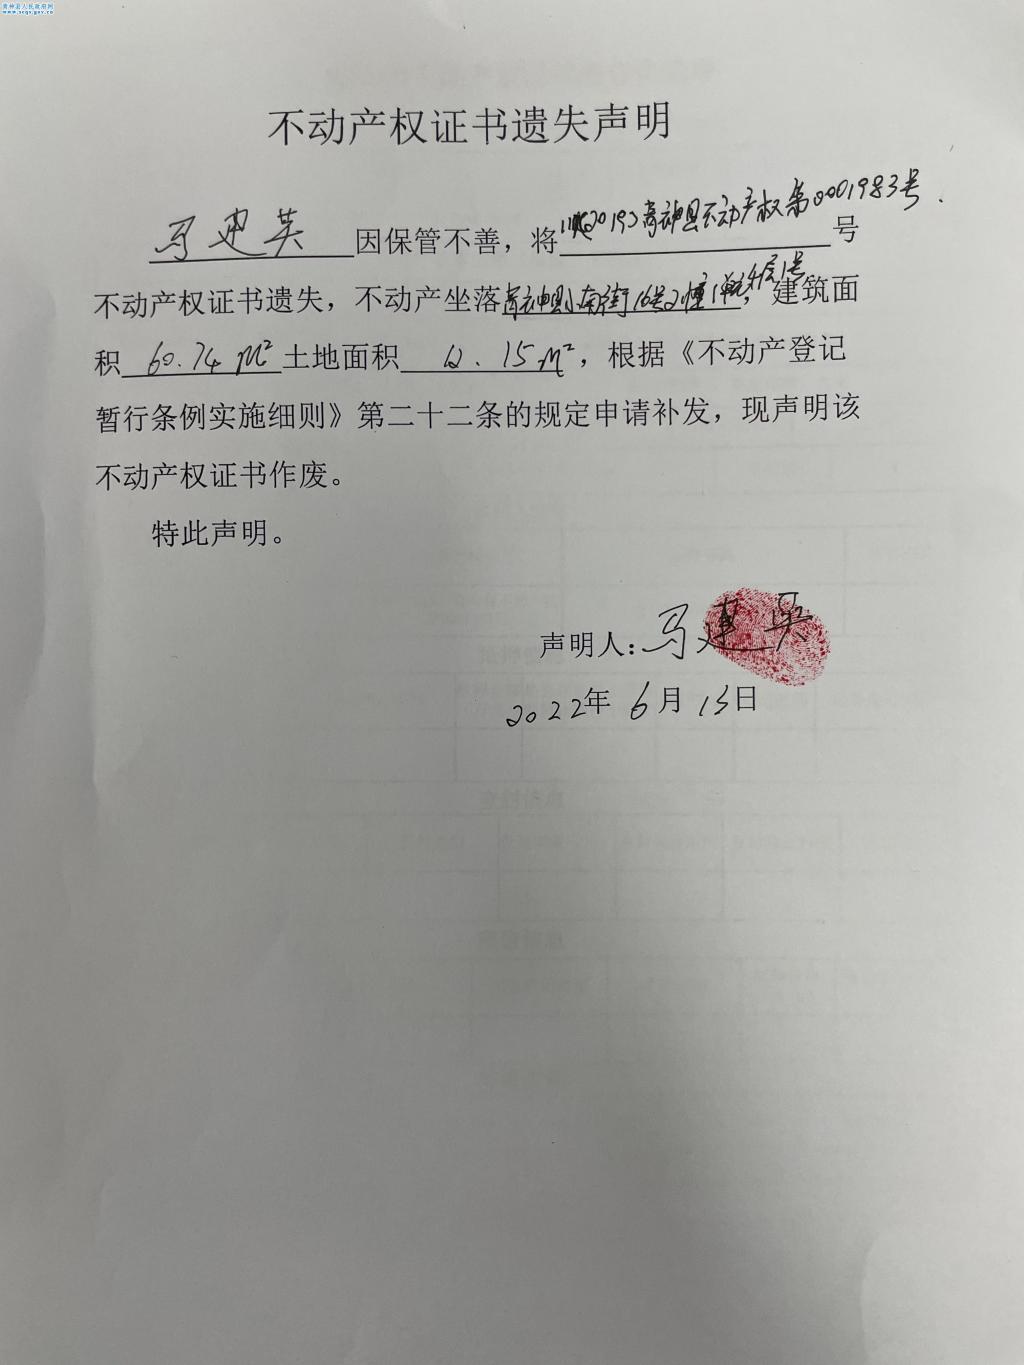 青神县人民政府网
www.scqs.gov.cn
不动产权证书遗失声明
马建英因保管不善，将川(2019)青神县不动产权第0001983号号
不动产权证书遗失，不动产坐落青神县小南街16号2幢1单元4层1号，建筑面
积60.74M²土地面积12.15M²，根据《不动产登记
暂行条例实施细则》第二十二条的规定申请补发，现声明该
不动产权证书作废。
特此声明。
声明人：马建英
2022年6月13日